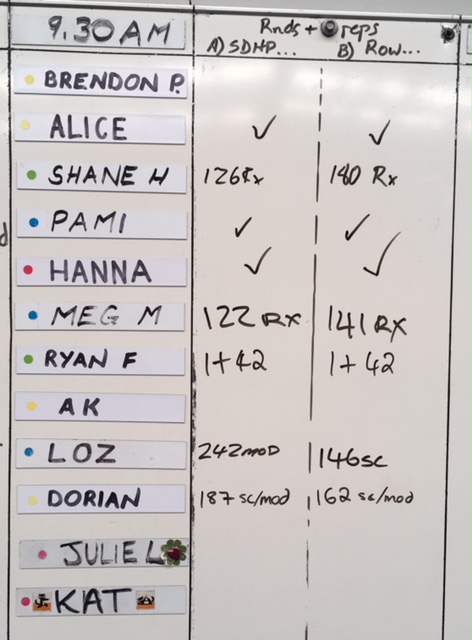 9.30 AM
Rnds + reps
A) SDHP... B) Row...
BRENDON P.
ALICE ✓ ✓
SHANE H 126 Rx 140 Rx
PAMI ✓ ✓
HANNA ✓ ✓
MEG M 122 RX 141 RX
RYAN F 1+42 1+42
AK
LOZ 242 MOD 146 SC
DORIAN 187 sc/mod 162 sc/mod
JULIE L
KAT